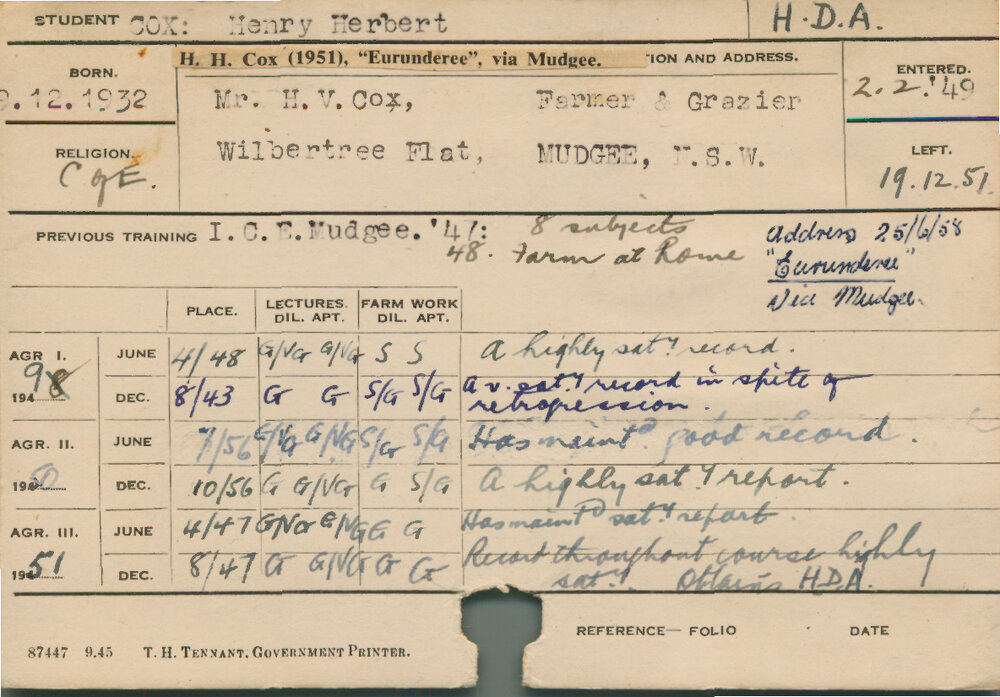 STUDENT COX: Henry Herbert H.D.A.
H. H. Cox (1951), “Eurunderee”, via Mudgee. ION AND ADDRESS.
BORN. ENTERED.
9.12.1932 Mr. H.V.Cox, Farmer & Grazier 2.2.'49
RELIGION. Wilbertree Flat, MUDGEE, N.S.W. LEFT.
C of E. 19.12.51
PREVIOUS TRAINING I.C.E.Mudgee.'47: 8 subjects
48. Farm at home
Address 25/6/58
"Eurunderee"
Via Mudgee.
PLACE. LECTURES. DIL. APT. FARM WORK DIL. APT.
AGR I. JUNE 4/48 G/VG G/VG S S A highly sat.y record.
1949 DEC. 8/43 G G S/G S/G A v. sat.y record in spite of
retrogression.
AGR. II. JUNE 7/56 G/VG G/VG S/G S/G Has maintd good record.
1950 DEC. 10/56 G G/VG G S/G A highly sat.y report.
AGR. III. JUNE 4/47 G/VG G/VG G G Has maintd sat.y report.
1951 DEC. 8/47 G G/VG G G Record throughout course highly
sat.y. Obtains H.D.A.
REFERENCE— FOLIO DATE
87447 9.45 T. H. TENNANT, GOVERNMENT PRINTER.